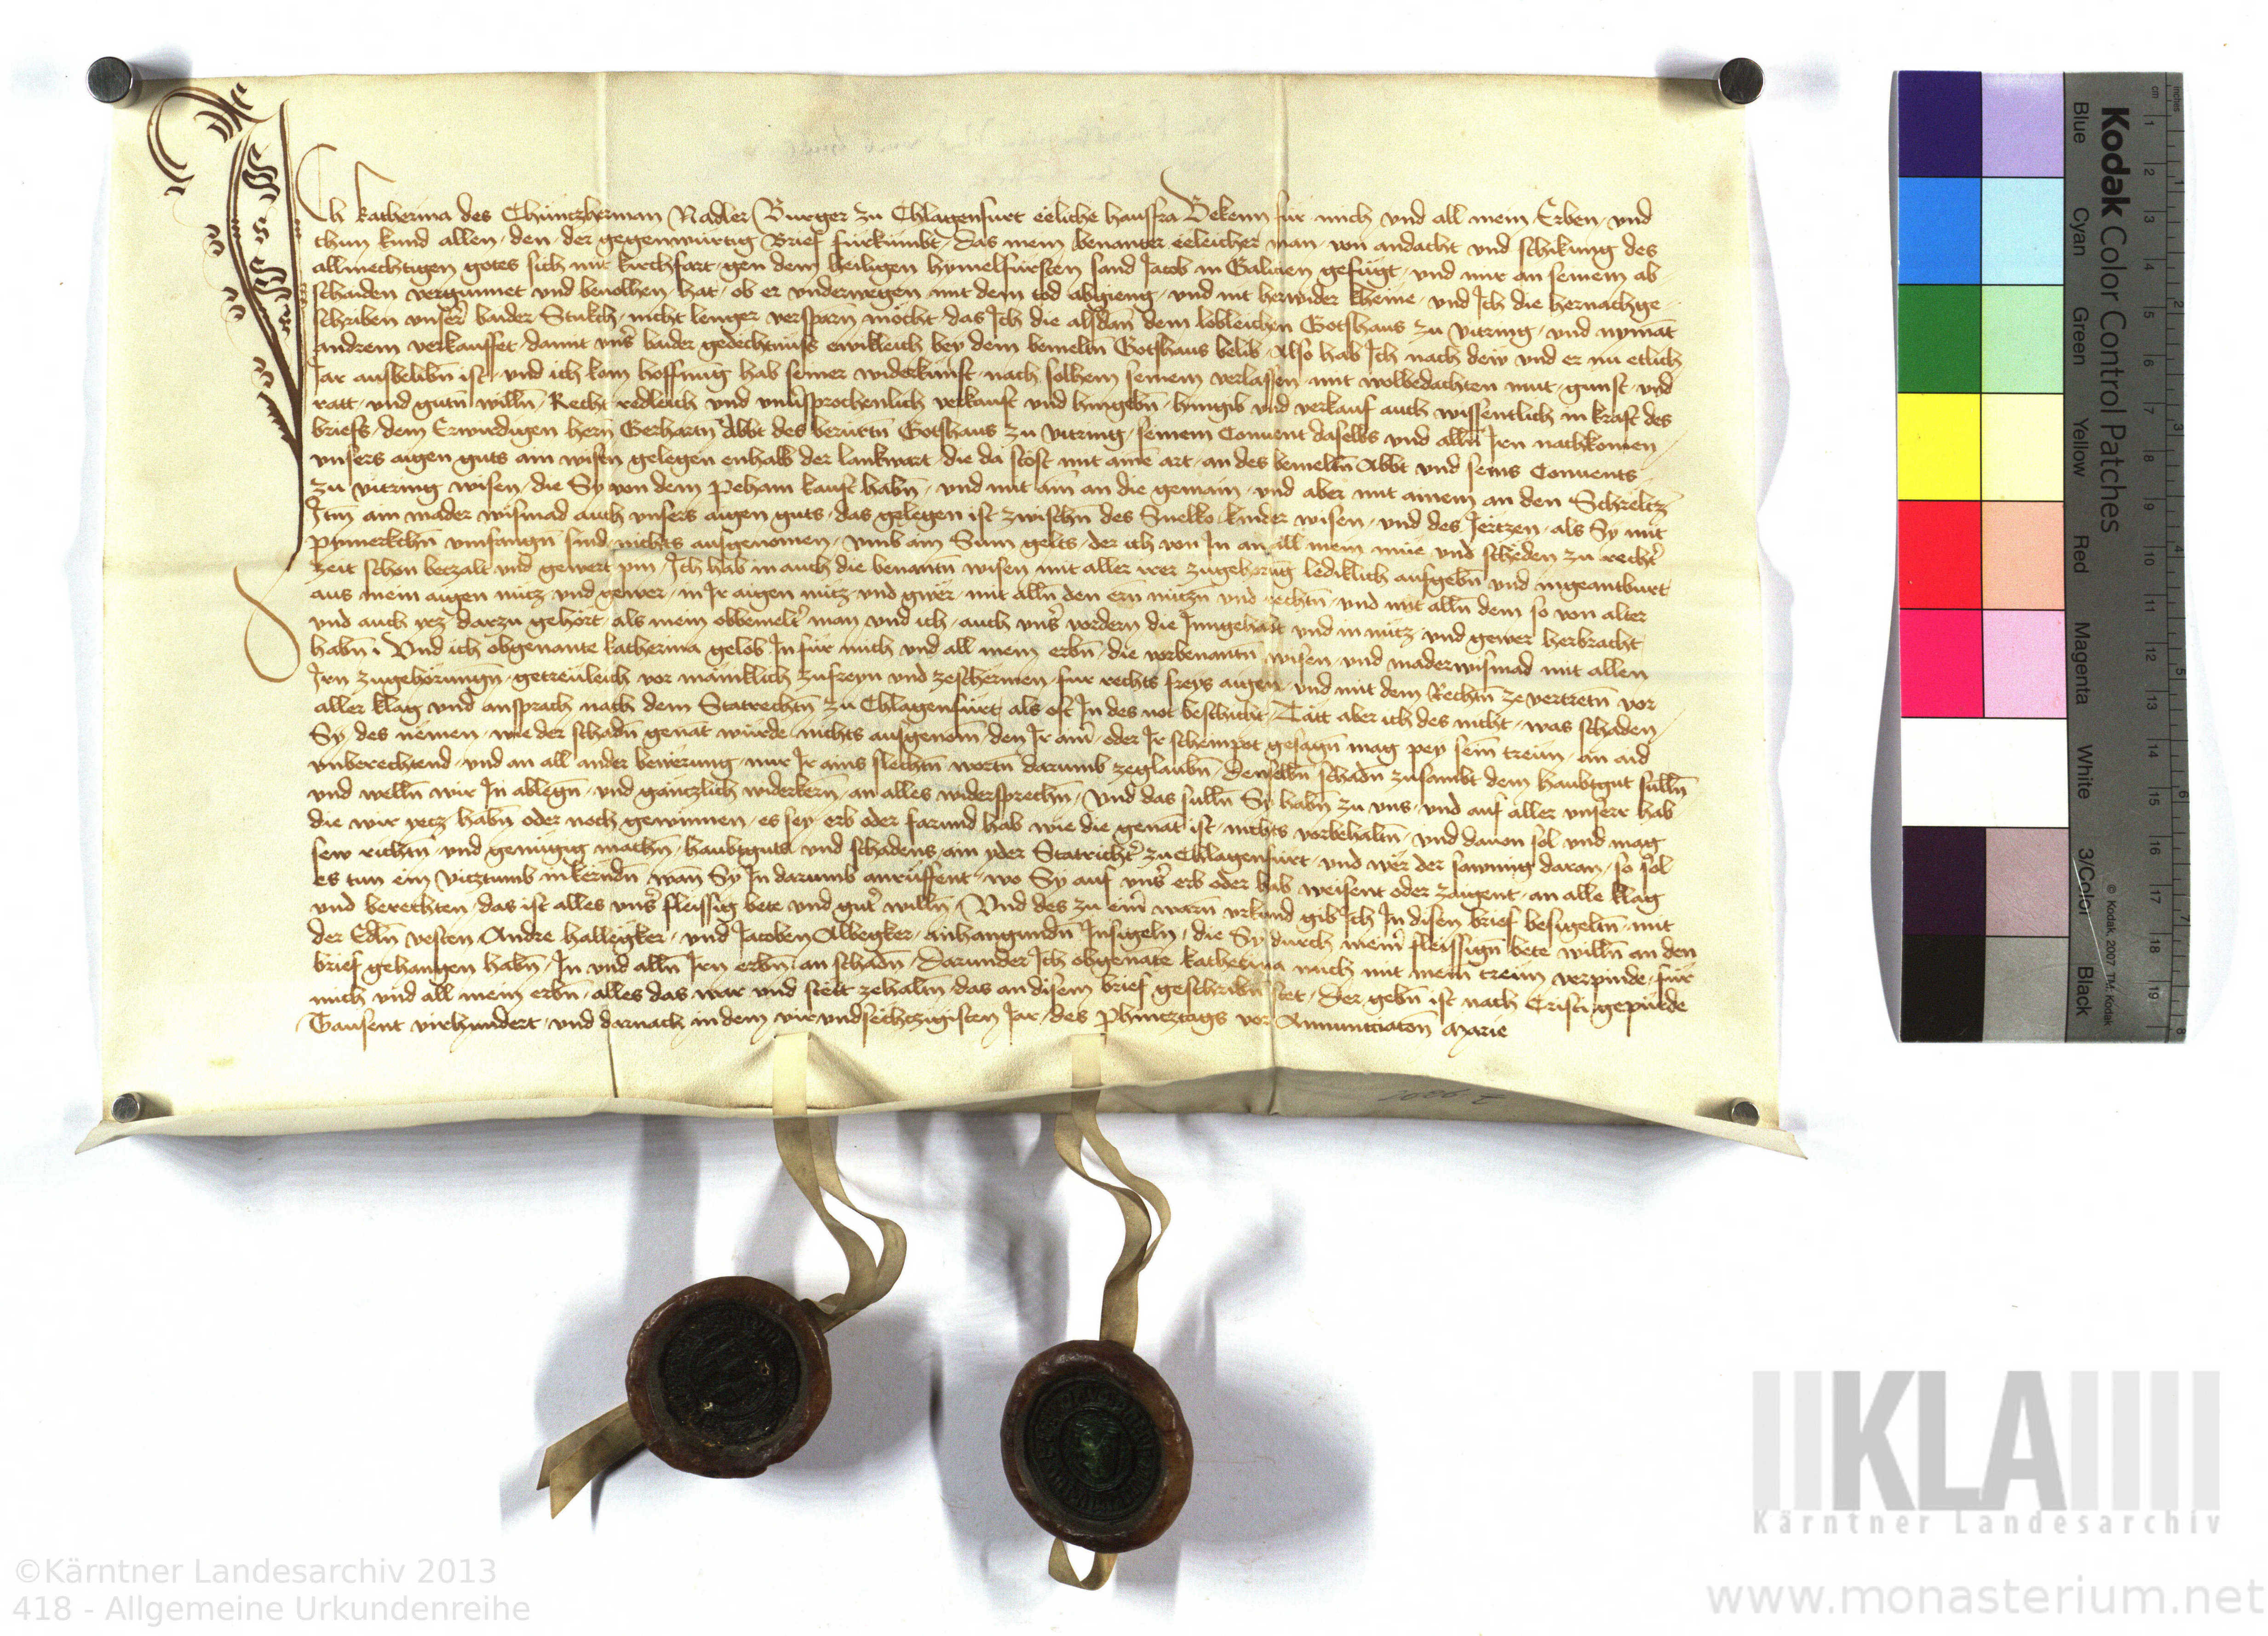 Ich Katherina des Chunczherman Nadler Burger zu Chlagenfurt eeliche hausfra Bekenn für mich vnd all mein Erben vnd
thun kund allen den der gegenwürtig Brief fürkumbt das mein benanter eeleicher man von andacht vnd schikung des
allmechtigen gotes sich mit kirchfart gen dem heiligen hymelfürsten sand Jacob in Galicien gefügt vnd mir an seinem ab
schaiden vergunnet vnd beuolhen hat ob er vnderwegen mit dem tod abgieng vnd nit herwider kheme vnd Ich die hernachge
schriben vnser baider Stukch nicht lenger versparn möcht das Ich die alsdan dem lobleichen Gotshaus zu Vitring vnd nymat
andrem verkauffet damit vns baider gedechtnüss ewikleich bey dem bemeltn Gotshaus belib Also hab Ich nach dew vnd er nu etlich
Jar ausbelibn ist vnd ich kain hoffnug hab seiner widerkunft nach solhem seinem verlassen mit wolbedachten mut gunst vnd
ratt vnd gutn willn Recht redleich vnd vnuersprochenlich verkauft vnd hingebn hingib vnd verkauf auch wissentlich in kraft des
briefs dem Erwirdigen hern Gerhartn Abbt des berürtn Gotshaus zu Vitring seinem Conuent daselbs vnd alln Irn nachkomen
vnsers aigen guts ain wisen gelegen enhalb der lankwart die da stost mit aine art an des bemeltn Abbt vnd seins Conuents
zu Vitring wisen die Sy von dem Peham kauft habn vnd mit aim an die gemain vnd aber mit ainem an den Schreltz
Itm ain mader wismad auch vnsers aigen guts das gelegen ist zwischn des Snello kinder wisen vnd des Jertzen als Sy mit
pymerkchn vmfangn sind nichts ausgenomen vmb ain Sum gelts der ich von In an all mein müe vnd scheden zu recht
zeit schon beczalt vnd gewert pin Ich hab in auch die benantn wisen mit aller irer zugehorug lediklich aufgebn vnd ingeantburt
aus mein aigen nütz vnd gewer in Ir aigen nütz vnd gwer mit alln den ern nutzn vnd rechtn vnd mit alln dem so von alter
vnd auch yez darzu gehört als mein obbemelt man vnd ich auch vns vordern die Inngehabt vnd in nütz vnd gewer herbracht
habn Vnd ich obgenante Katherina gelob In für mich vnd all mein erbn die vorbenantn wisen vnd maderwismad mit allen
Irn zugehörungn getreuleich vor mäniklich zufreyn vnd zeschermen für rechts freys aigen vnd mit dem Rechtn ze vertretn vor
aller klag vnd ansprach nach dem Statrechtn zu Chlagenfurt als oft In des not beschicht Tätt aber ich des nicht was schaden
Sy des nemen wie der schadn genat würde nichts ausgenom den Ir aim oder Ir scheinpot gesagn mag pey sein trewn an aid
vnberechtend vnd an all ander bewerung nur Ir ains slechtn wortn darumb zeglaubn Denselbn schadn zusambt dem haubtgut sülln
vnd welln wir In ablegn vnd gäntzlich widerkern an alles widersprechn Vnd das sulln Sy habn zu vns vnd auf aller vnserr hab
die wir yetz habn oder noch gewinnen es sey erb oder farund hab wie die genat ist nichts vorbehaltn vnd dauon sol vnd mag
sew richtn vnd genügig machn haubtguts vnd schadens ain yder Statricht zu Chlagenfurt vnd wer der sawmig daran so sol
es tun ein Vicztumb in kerndn wan Sy In darumb anrüffent wo Sy auf vns erb oder hab weisent oder zaigent an alle klag
vnd berechten das ist alles vns fleissig bete vnd gut willn Vnd des zu eim warn vrkund gib Ich In disen brief besigeltn mit
der Edln vesten Andre hallegker vnd Jacoben Albegker anhangundn Insigeln die Sy durch meinr fleissign bete willn an den
brief gehangen habn In vnd alln Irn erbn an schadn Darunder Ich obgenate Katherina mich mit mein trewn verpinde für
mich vnd all mein erbn alles das war vnd stett zehaltn das an disem brief geschribn stet Der gebn ist nach Cristi gepürde
Tausent vierhundert vnd darnach in dem vir vndsechtzigisten Jar des Phincztags vor Annunctiaton Marie
Kodak Color Control Patches
Blue Cyan Green Yellow Red Magenta White 3/Color Black
© Kodak, 2007 TM: Kodak
cm 1 2 3 4 5 6 7 8 9 10 11 12 13 14 15 16 17 18 19
inches 1 2 3 4 5 6 7 8
KLA
Kärntner Landesarchiv
©Kärntner Landesarchiv 2013
418 - Allgemeine Urkundenreihe
www.monasterium.net